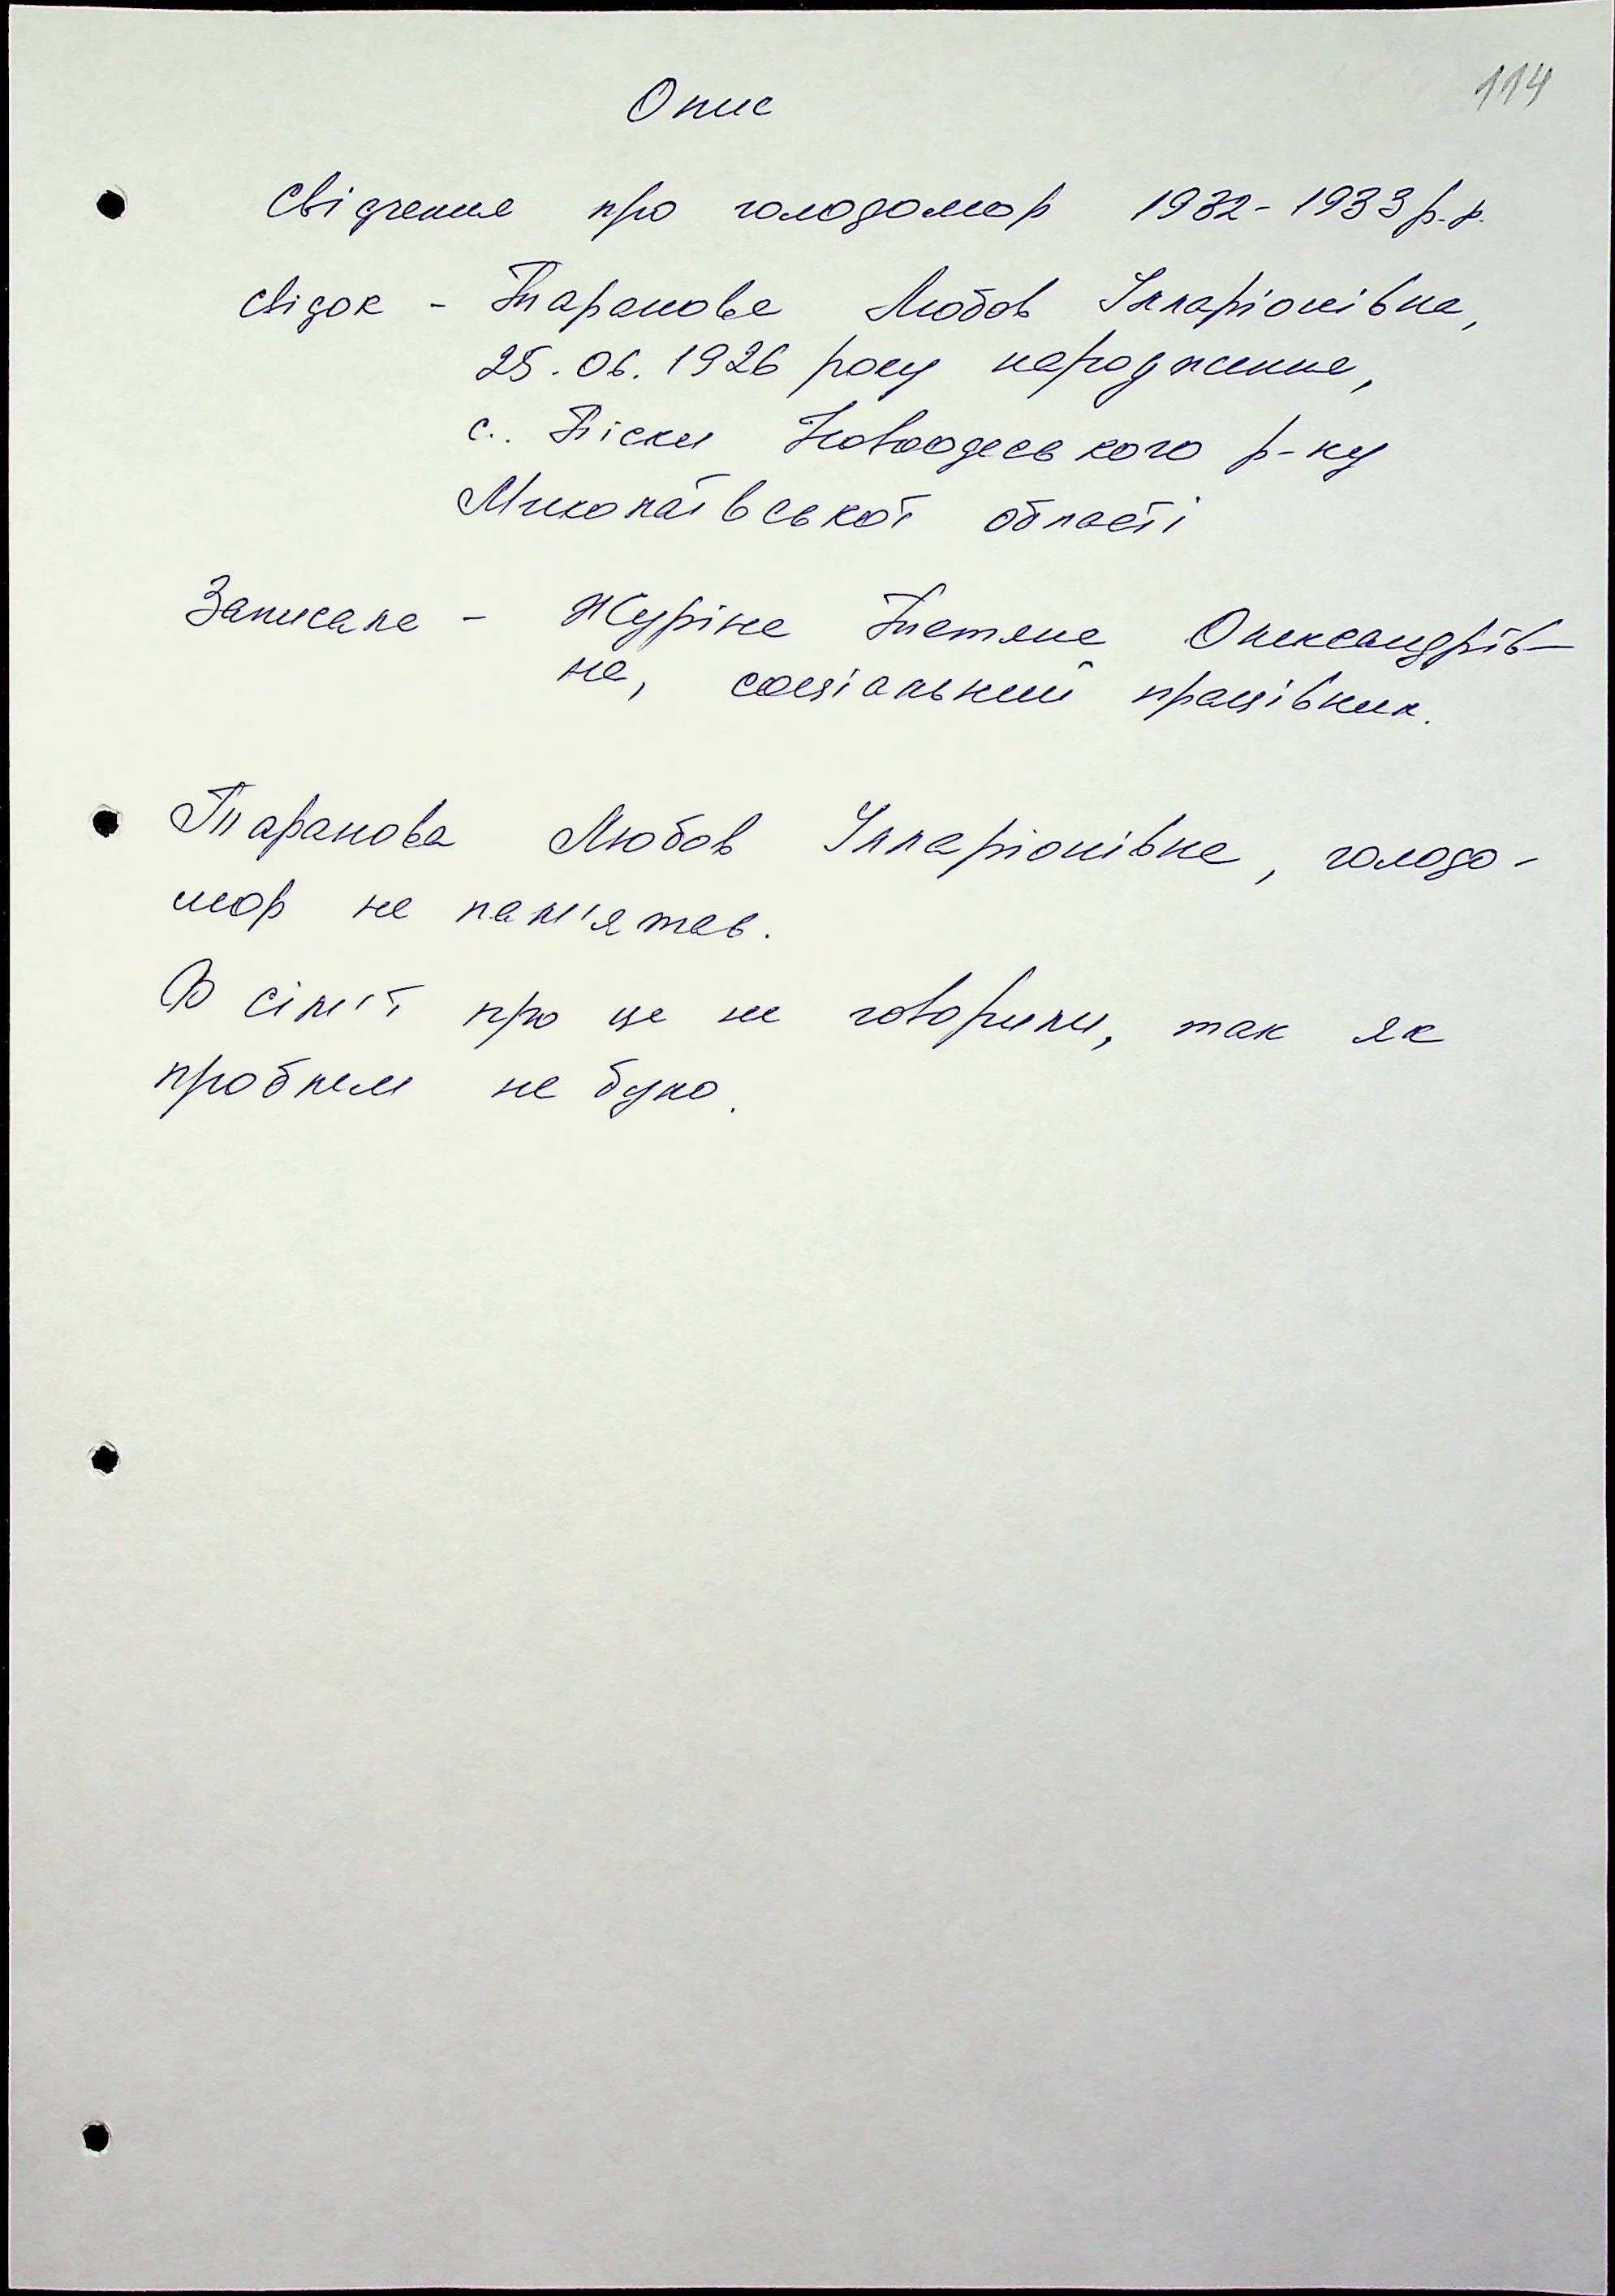 114
Опис
Свідчення про голодомор 1932-1933 р.р.
свідок - Таранова Любов Ілларіонівна,
25.06.1926 року народження,
с. Піски Новоодеського р-ну
Миколаївської області
Записала - Журіна Тетяна Олександрів-
на, соціальний працівник.
Таранова Любов Ілларіонівна, голодо-
мор не пам'ятав.
В сім'ї про це не говорили, так як
проблем не було.